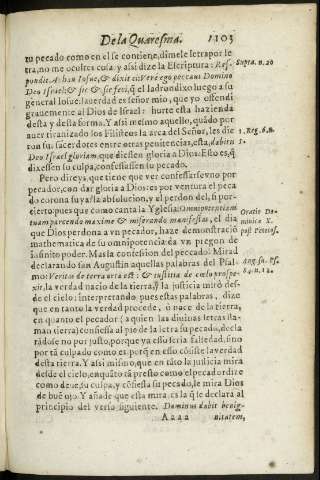 De la Quaresma. 1103
tu pecado como en el se contiene, dimele letra por le
tra, no me ocultes cosa. y assi dize la Escriptura: Res-
pondit Achan Iosue, & dixit ei: Verè ego peccaui Domino
Deo Israel: & sic & sic feci, q̃ el ladron dixo luego a su
general Iosue: la verdad es señor mio, que yo offendi
grauemente al Dios de Israel: hurte esta hazienda
desta y desta forma. Y assi mesmo aquello, quãdo por
auer tiranizado los Filisteos la arca del Señor, les die
ron sus sacerdotes entre otras penitencias, esta, dabitis
Deo Israel gloriam, que diessen gloria a Dios: Esto es, q̃
dixessen su culpa, confessassen su pecado.
Pero direys, que tiene que ver confessarse vno por
pecador, con dar gloria a Dios: es por ventura el peca
do corona suya? la absolucion, y el perdon del, si por-
cierto: pues que como canta la Yglesia: Omnipotentiam
tuam parcendo maximè & miserando manifestas, el dia
que Dios perdona a vn pecador, haze demonstraciõ
mathematica de su omnipotencia: da vn pregon de
infinito poder. Mas la confession del pecado? Mirad
declarando san Augustin aquellas palabras del Psal-
mo: Veritas de terra orta est: & iustitia de cœlo prospe-
xit, la verdad nacio de la tierra, y la justicia mirò des-
de el cielo: interpretando pues estas palabras, dize
que en tanto la verdad procede, ò nace de la tierra,
en quanto el pecador (a quien las diuinas letras lla-
man tierra) confiessa al pie de la letra su pecado, decla
rãdose no por justo, porque ya esso seria falsedad, sino
por tã culpado como es: porq̃ en esso cõsiste la verdad
desta tierra. Y assi mismo, que en tãto la justicia mira
desde el cielo, en quãto tã presto como el pecador dize
como deue, su culpa, y cõfiessa su pecado, le mira Dios
de buẽ ojo. Y añade que esta mira, es la q̃ le declara al
principio del verso siguiente. Dominus dabit benig-
Aaaa nitatem,
Supra. n. 20
1. Reg. 6. n.
5.
Oratio Do-
minica X.
post Pentecos.
Aug. in. Ps.
84. n. 12.